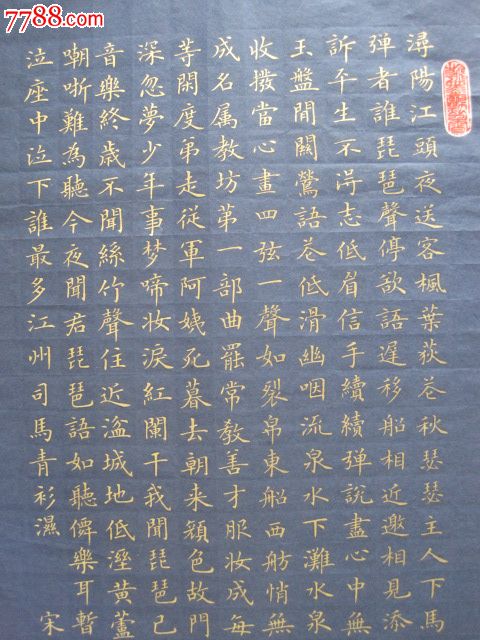 7788.com
潯陽江頭夜送客楓葉荻花秋瑟瑟主人下馬
弹者誰琵琶聲停欲語遲移船相近邀相見添
訴平生不淂志低眉信手續續弹說盡心中無
玉盤間關鶯語花低滑幽咽流泉水下灘水泉
收撥當心畫四弦一聲如裂帛東船西舫悄無
成名属教坊第一部曲罷常教善才服妆成每
等閑度弟走從軍阿姨死暮去朝来顏色故門
深忽夢少年事梦啼妆淚紅闌干我聞琵琶已
音樂終歲不聞絲竹聲住近湓城地低溼黄蘆
嘲哳難為聽今夜聞君琵琶語如聽僊樂耳暫
泣座中泣下誰最多江州司馬青衫濕 宋